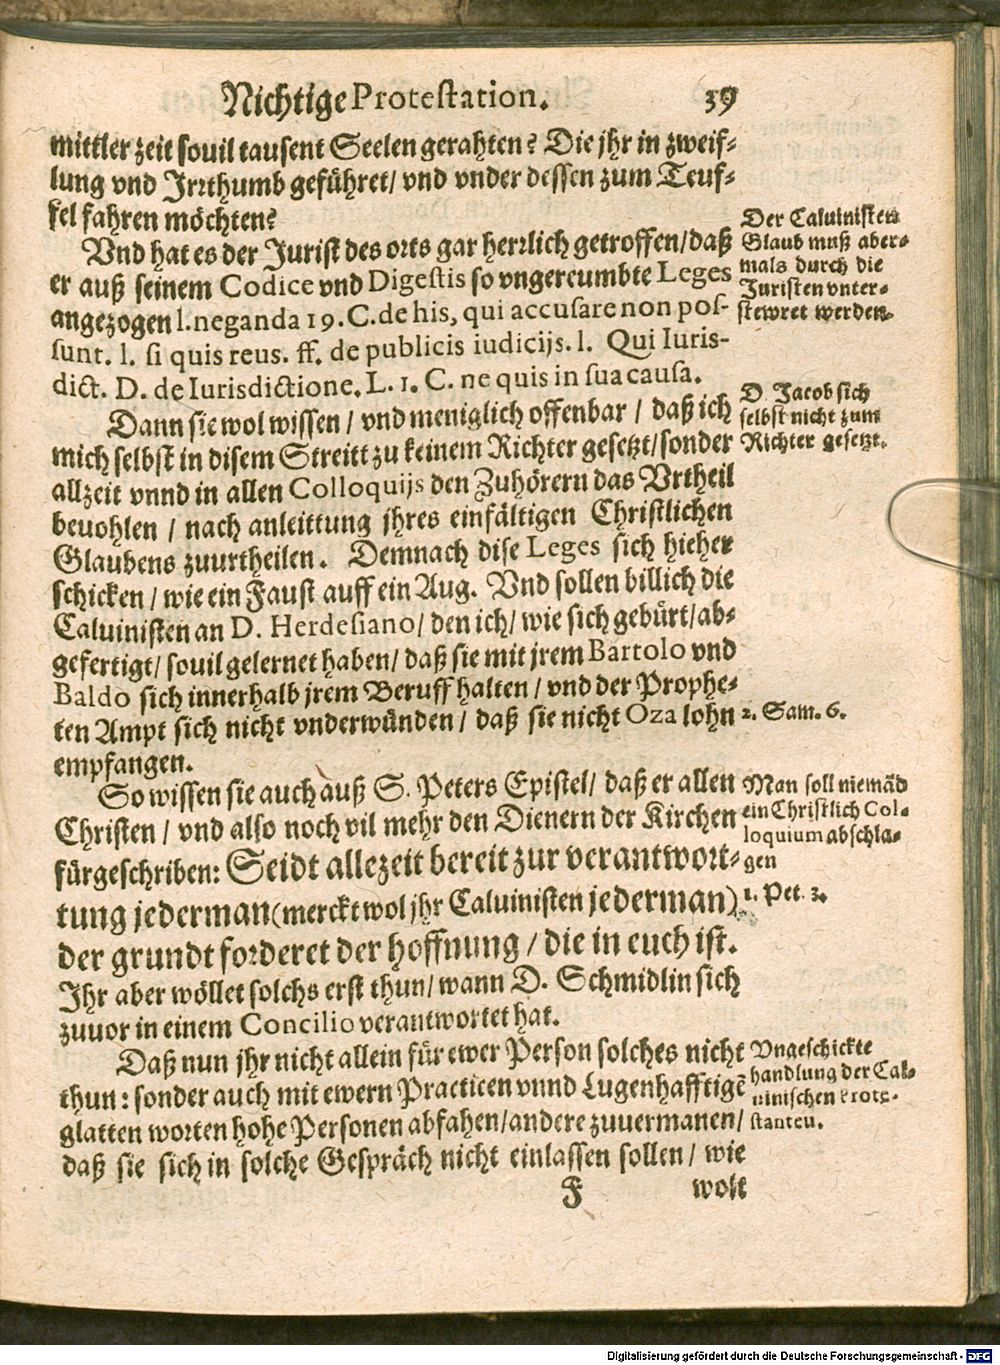 Nichtige Protestation. 39
mittler zeit souil tausent Seelen gerahten? Die jhr in zweif-
lung vnd Jrrthumb geführet/ vnd vnder dessen zum Teuf-
fel fahren möchten?
Vnd hat es der Jurist des orts gar herrlich getroffen/ daß
er auß seinem Codice vnd Digestis so vngereumbte Leges
angezogen l. neganda 19. C. de his, qui accusare non pos-
sunt. l. si quis reus. ff. de publicis iudicijs. l. Qui Iuris-
dict. D. de Iurisdictione. L. 1. C. ne quis in sua causa.
Der Caluinisten
Glaub muß aber-
mals durch die
Juristen vnter-
stewret werden.
Dann sie wol wissen / vnd meniglich offenbar / daß ich
mich selbst in disem Streitt zu keinem Richter gesetzt/ sonder
allzeit vnnd in allen Colloquijs den Zuhörern das Vrtheil
beuohlen / nach anleittung jhres einfältigen Christlichen
Glaubens zuurtheilen. Demnach dise Leges sich hieher
schicken / wie ein Faust auff ein Aug. Vnd sollen billich die
Caluinisten an D. Herdesiano/ den ich/ wie sich gebürt/ ab-
gefertigt/ souil gelernet haben/ daß sie mit jrem Bartolo vnd
Baldo sich innerhalb jrem Beruff halten / vnd der Prophe-
ten Ampt sich nicht vnderwünden / daß sie nicht Oza lohn
empfangen.
D. Jacob sich
selbst nicht zum
Richter gesetzt.
2. Sam. 6.
So wissen sie auch auß S. Peters Epistel/ daß er allen
Christen / vnd also noch vil mehr den Dienern der Kirchen
fürgeschriben: Seidt allezeit bereit zur verantwort-
tung jederman (merckt wol jhr Caluinisten jederman)
der grundt forderet der hoffnung / die in euch ist.
Jhr aber wöllet solchs erst thun/ wann D. Schmidlin sich
zuuor in einem Concilio verantwortet hat.
Man soll niemād
ein Christlich Col-
loquium abschla-
gen
1. Pet. 3.
Daß nun jhr nicht allein für ewer Person solches nicht
thun: sonder auch mit ewern Practicen vnnd Lugenhafftigē
glatten worten hohe Personen abfahen/ andere zuuermanen/
daß sie sich in solche Gespräch nicht einlassen sollen / wie
Vngeschickte
handlung der Cal-
uinischen Prote-
stanten.
F wolt
Digitalisierung gefördert durch die Deutsche Forschungsgemeinschaft - DFG